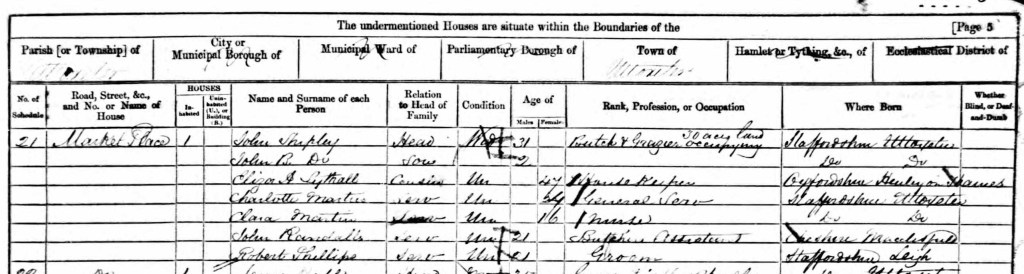 The undermentioned Houses are situate within the Boundaries of the [Page 5
Parish [or Township] of City or Municipal Borough of Municipal Ward of Parliamentary Borough of Town of Hamlet or Tything, &c., of Ecclesiastical District of
Uttoxeter Uttoxeter
No. of Schedule Road, Street, &c., and No. or Name of House HOUSES Inhabited Uninhabited (U.), or Building (B.) Name and Surname of each Person Relation to Head of Family Condition Age of Males Females Rank, Profession, or Occupation Where Born Whether Blind, or Deaf-and-Dumb
21 Market Place 1 John Shipley Head Wid 31 Butch & Grazier occupying 30 acres land Staffordshire Uttoxeter
John B. Do Son 2 Do Do
Eliza A Lythall Cousin Un 47 House Keeper Oxfordshire Henley on Thames
Charlotte Martin Serv Un 24 General Serv Staffordshire Uttoxeter
Clara Martin Serv Un 16 Nurse Do Do
John Randalls Serv Un 21 Butcher Assistant Cheshire Macclesfield
Robert Phillips Serv Un 21 Groom Staffordshire Leigh
22 Do 1